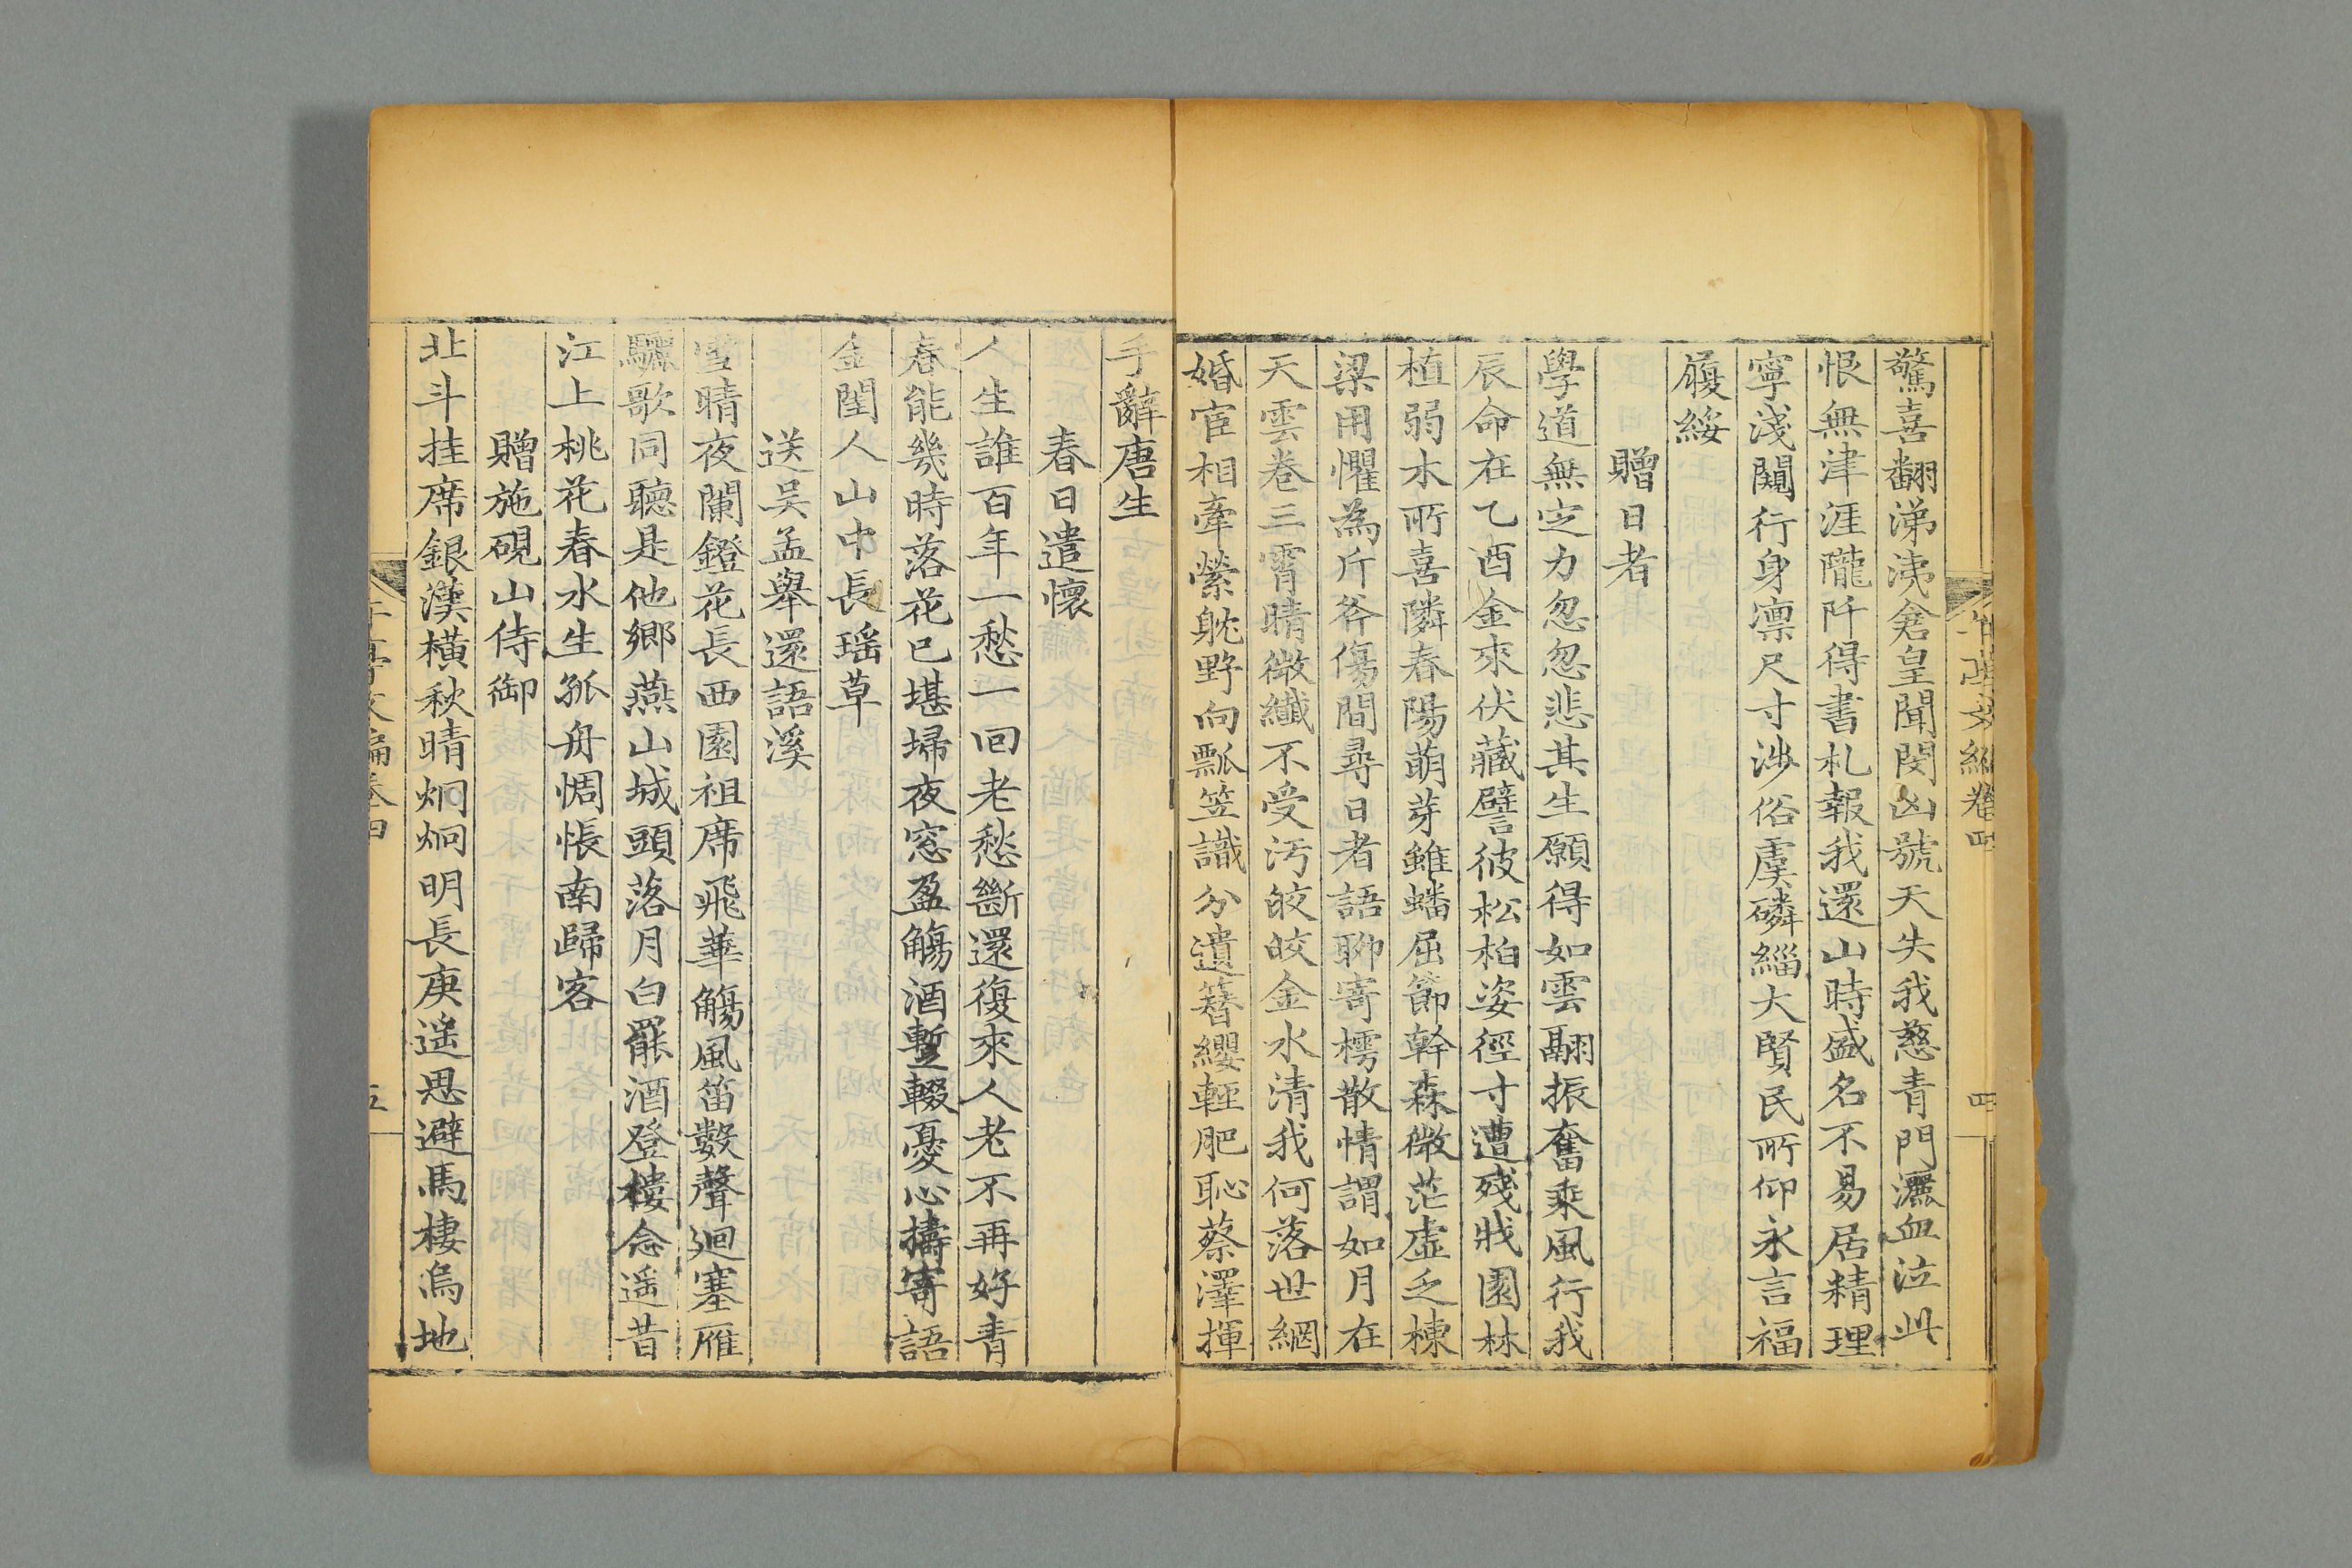 午亭文編卷四 四
驚喜翻涕洟倉皇聞閔凶號天失我慈青門灑血泣此
恨無津涯隴阡得書札報我還山時盛名不易居精理
寧淺闚行身凛尺寸涉俗虞磷緇大賢民所仰永言福
履綏
贈日者
學道無定力忽忽悲其生願得如雲翮振奮乘風行我
辰命在乙酉金來伏藏譬彼松柏姿徑寸遭殘戕園林
植弱木所喜隣春陽萌芽雖蟠屈節幹森微茫虛乏棟
梁用懼為斤斧傷間尋日者語聊寄樗散情謂如月在
天雲卷三霄晴微纖不受汚皎皎金水清我何落世網
婚宦相牽縈躭野向瓢笠識分遺簪纓輕肥恥蔡澤揮
手辭唐生
春日遣懷
人生誰百年一愁一回老愁斷還復來人老不再好青
春能幾時落花已堪埽夜窓盈觴酒蹔輟憂心擣寄語
金閨人山中長瑶草
送吴孟舉還語溪
雪晴夜闌鐙花長西園祖席飛華觴風笛數聲迴塞雁
驪歌同聽是他鄉燕山城頭落月白罷酒登樓念遥昔
江上桃花春水生孤舟惆悵南歸客
贈施硯山侍御
北斗挂席銀漢橫秋晴炯炯明長庚遥思避馬棲烏地
午亭文編卷四 五